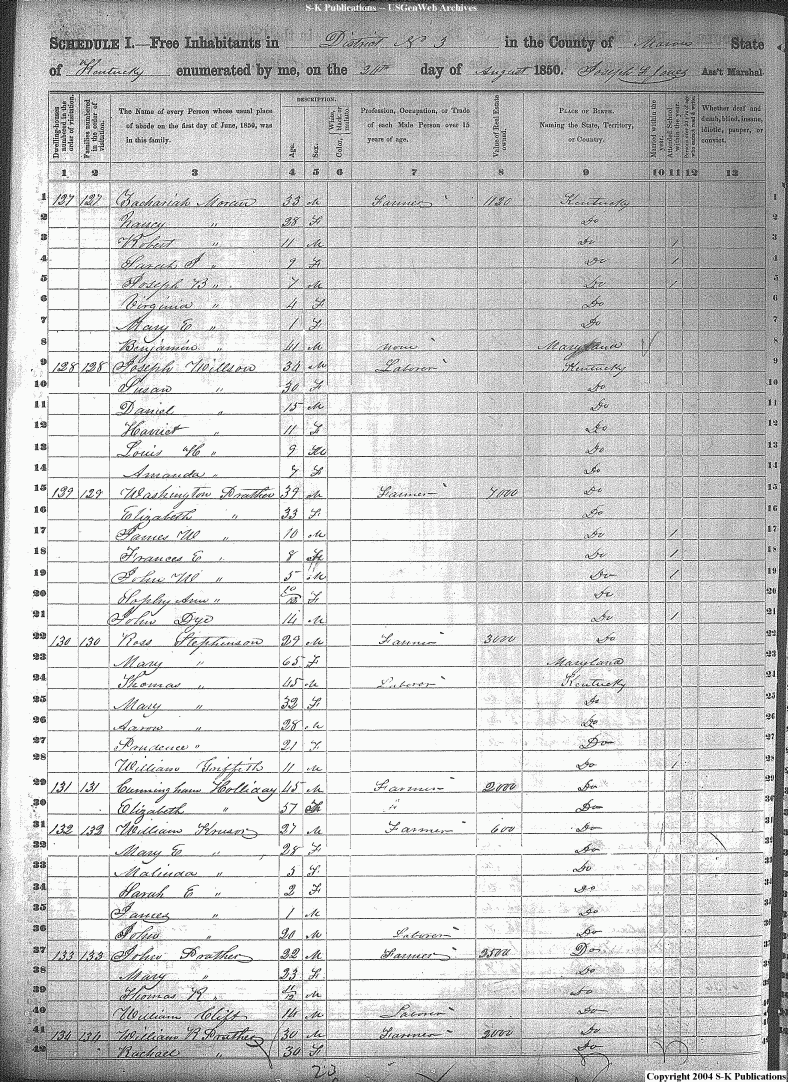 S-K Publications – USGenWeb Archives
SCHEDULE I.—Free Inhabitants in District No 3 in the County of State
of Kentucky enumerated by me, on the day of August 1850. Joseph Ass't Marshal
DESCRIPTION.
Dwelling-houses numbered in the order of visitation. Families numbered in the order of visitation. The Name of every Person whose usual place of abode on the first day of June, 1850, was in this family. Age. Sex. Color, White, black, or mulatto. Profession, Occupation, or Trade of each Male Person over 15 years of age. Value of Real Estate owned. PLACE OF BIRTH. Naming the State, Territory, or Country. Married within the year. Attended School within the year. Whether deaf and dumb, blind, insane, idiotic, pauper, or convict.
1 2 3 4 5 6 7 8 9 10 11 12 13
1 127 127 Zachariah Moran 33 M Farmer 1120 Kentucky 1
2 Nancy " 28 F Do 2
3 Robert " 11 M Do 1 3
4 Sarah " 9 F Do 1 4
5 Joseph B " 7 M Do 1 5
6 Virginia " 4 F Do 6
7 Mary E " 1 F Do 7
8 Benjamin " 41 M none Maryland 8
9 128 128 Joseph Willson 34 M Laborer Kentucky 9
10 Susan " 30 F Do 10
11 Daniel " 15 M Do 11
12 Harriet " 11 F Do 12
13 Louis H " 9 M Do 13
14 Amanda " 7 F Do 14
15 129 129 Washington Prather 39 M Farmer 7000 Do 15
16 Elizabeth " 33 F Do 16
17 James W " 10 M Do 1 17
18 Frances E " 8 F Do 1 18
19 John W " 5 M Do 1 19
20 Ann " 10/12 F Do 20
21 John Dye 14 M Do 1 21
22 130 130 Ross Stephenson 29 M Farmer 3000 Do 22
23 Mary " 65 F Maryland 23
24 Thomas " 45 M Laborer Kentucky 24
25 Mary " 32 F Do 25
26 Aaron " 28 M Do 26
27 Prudence " 21 F Do 27
28 William Griffith 11 M Do 1 28
29 131 131 Cunningham Holliday 45 M Farmer 2000 Do
30 Elizabeth " 57 F " Do
31 132 132 William 27 M Farmer 600 Do
32 Mary E " 28 F Do
33 Malinda " 3 F Do
34 Sarah E " 2 F Do
35 James " 1 M Do
36 John " 20 M Laborer Do
37 133 133 John Prather 22 M Farmer 2500 Do
38 Mary " 23 F Do
39 Thomas R " 11/12 M Do
40 William Clift 14 M Laborer Do
41 134 134 William R Prather 30 M Farmer 2000 Do
42 Rachael " 30 F Do
Copyright 2004 S-K Publications